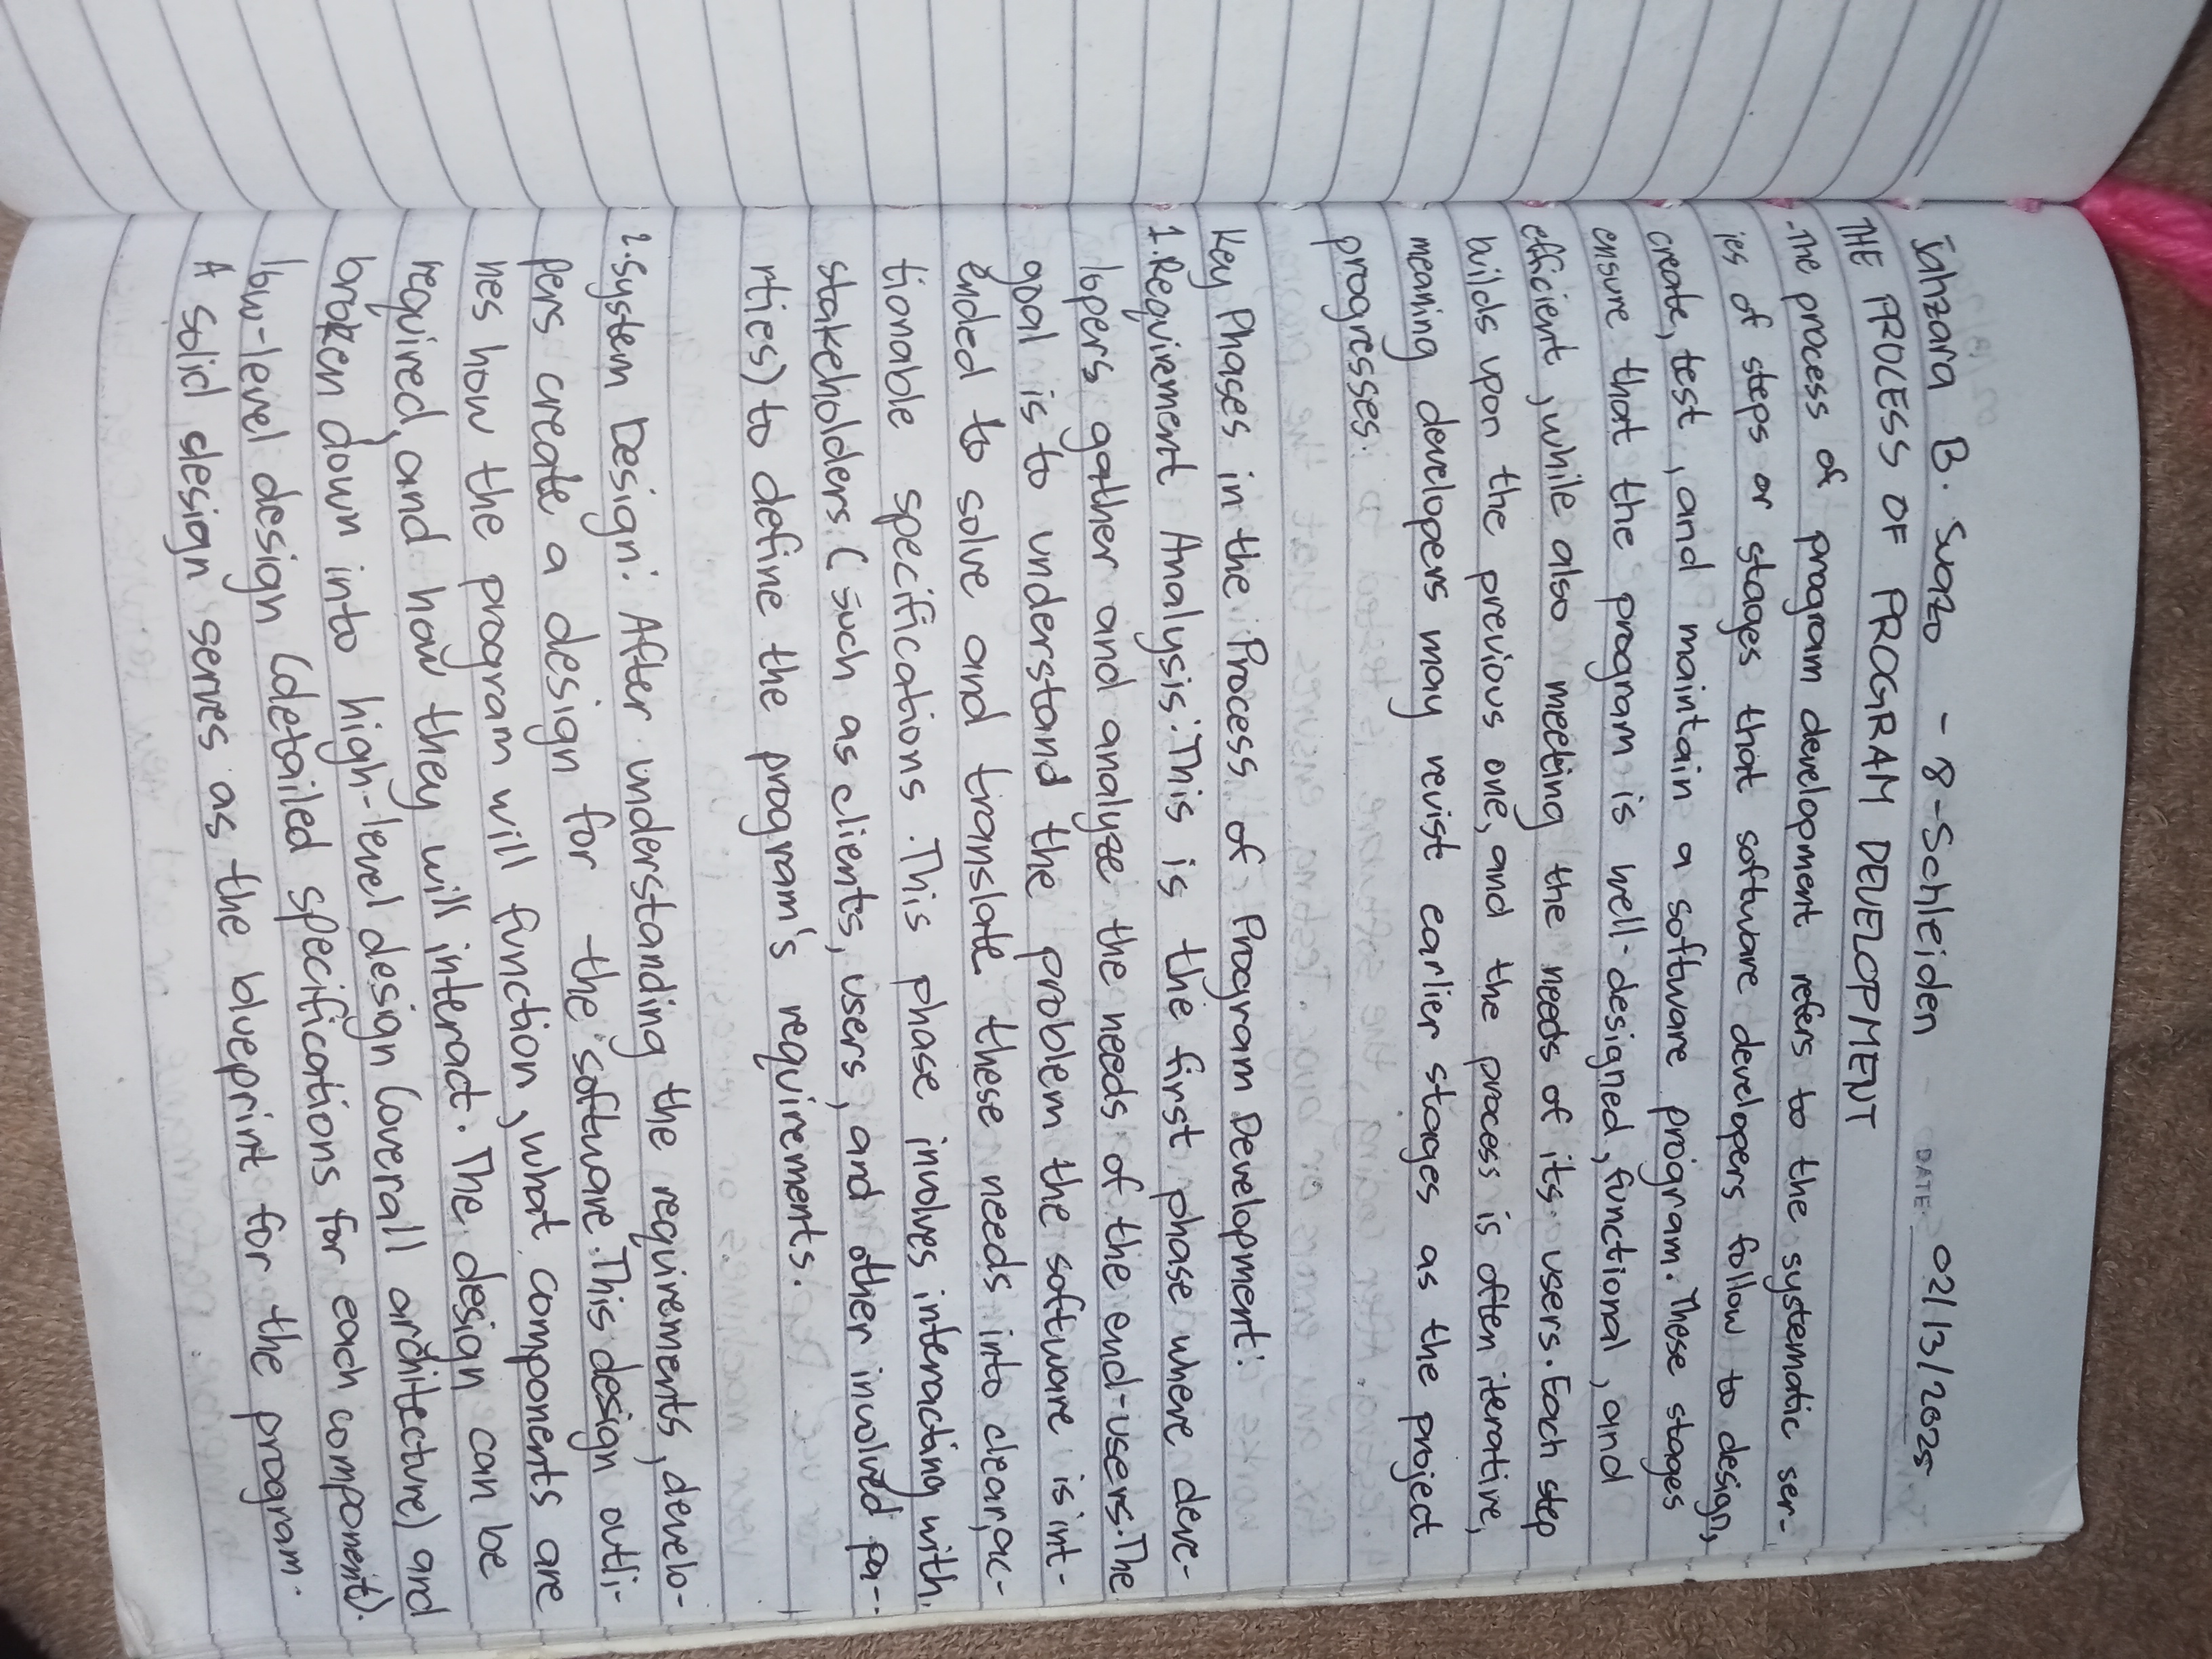 Jahzara B. Suazo - 8-Schleiden DATE: 02/13/2025
THE PROCESS OF PROGRAM DEVELOPMENT
-The process of program development refers to the systematic ser-
ies of steps or stages that software developers follow to design,
create, test, and maintain a software program. These stages
ensure that the program is well-designed, functional, and
efficient, while also meeting the needs of its users. Each step
builds upon the previous one, and the process is often iterative,
meaning developers may revist earlier stages as the project
progresses.
Key Phases in the Process of Program Development:
1. Requirement Analysis: This is the first phase where deve-
lopers gather and analyze the needs of the end-users. The
goal is to understand the problem the software is int-
ended to solve and translate these needs into clear, ac-
tionable specifications. This phase involves interacting with
stakeholders (such as clients, users, and other involved pa-
rties) to define the program's requirements.
2. System Design: After understanding the requirements, develo-
pers create a design for the software. This design outli-
nes how the program will function, what components are
required, and how they will interact. The design can be
broken down into high-level design (overall architecture) and
low-level design (detailed specifications for each component).
A solid design serves as the blueprint for the program.